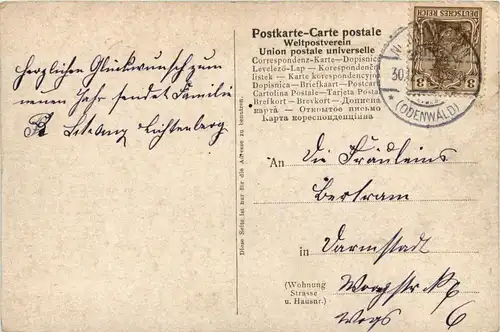 herzlichen Glückwunsch zum
neuen Jahr sendet Familie
Lichtenberg
Diese Seite ist nur für die Adresse zu benutzen.
Postkarte-Carte postale
Weltpostverein
Union postale universelle
Correspondenz-Karte—Dopisnice
Levelező-Lap — Korespondencni
listek — Karte korespondencyjna
Dopisnica—Briefkaart—Postcard
Cartolina Postale—Tarjeta Postal
Brefkort — Brevkort — Дописна
карта — Открытое письмо
Карта кореспонденцiйна
DEUTSCHES REICH
3 3
30.
(ODENWALD)
An die Fräuleins
Bertram
in Darmstadt
(Wohnung
Strasse
u. Hausnr.)
6